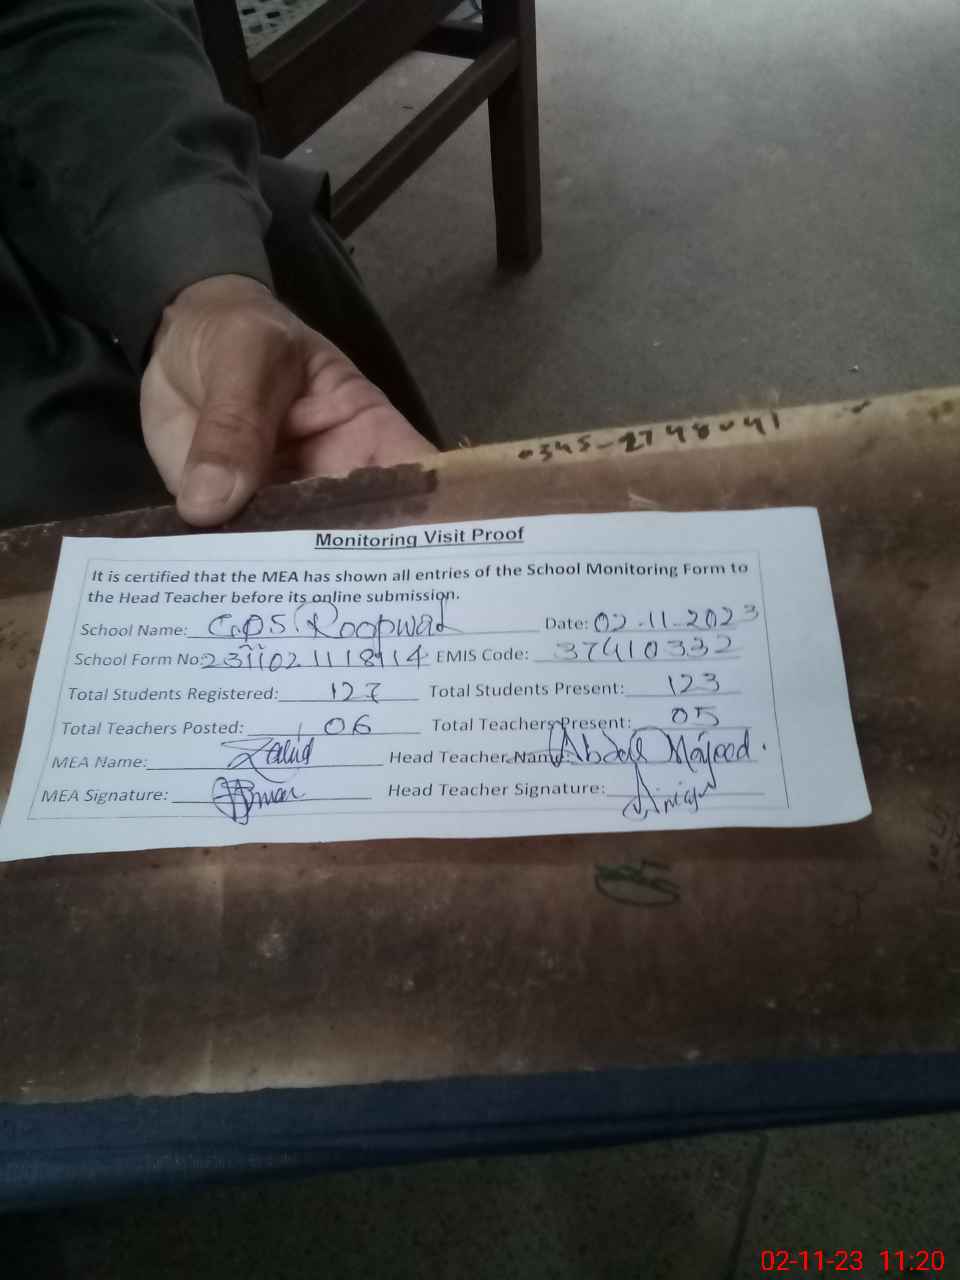 0345-2748041
Monitoring Visit Proof
It is certified that the MEA has shown all entries of the School Monitoring Form to
the Head Teacher before its online submission.
School Name: GPS Roopwal Date: 02-11-2023
School Form No: EMIS Code: 37410332
Total Students Registered: 127 Total Students Present: 123
Total Teachers Posted: 06 Total Teachers Present: 05
MEA Name: Head Teacher Name: Abdul Majeed.
MEA Signature: Head Teacher Signature:
02-11-23 11:20